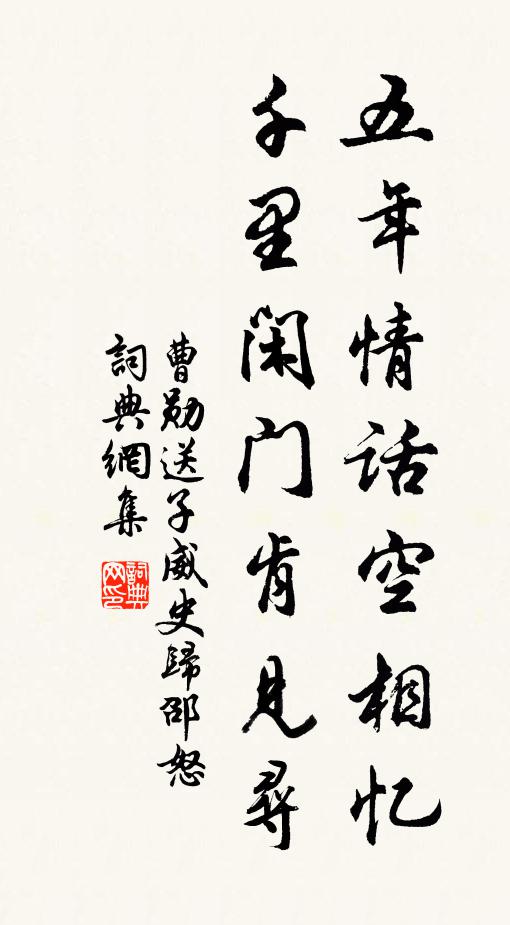 五年情话空相忆
千里闲门肯見尋
曹勛送子威史歸邵怒
詞典網集
詞典网印